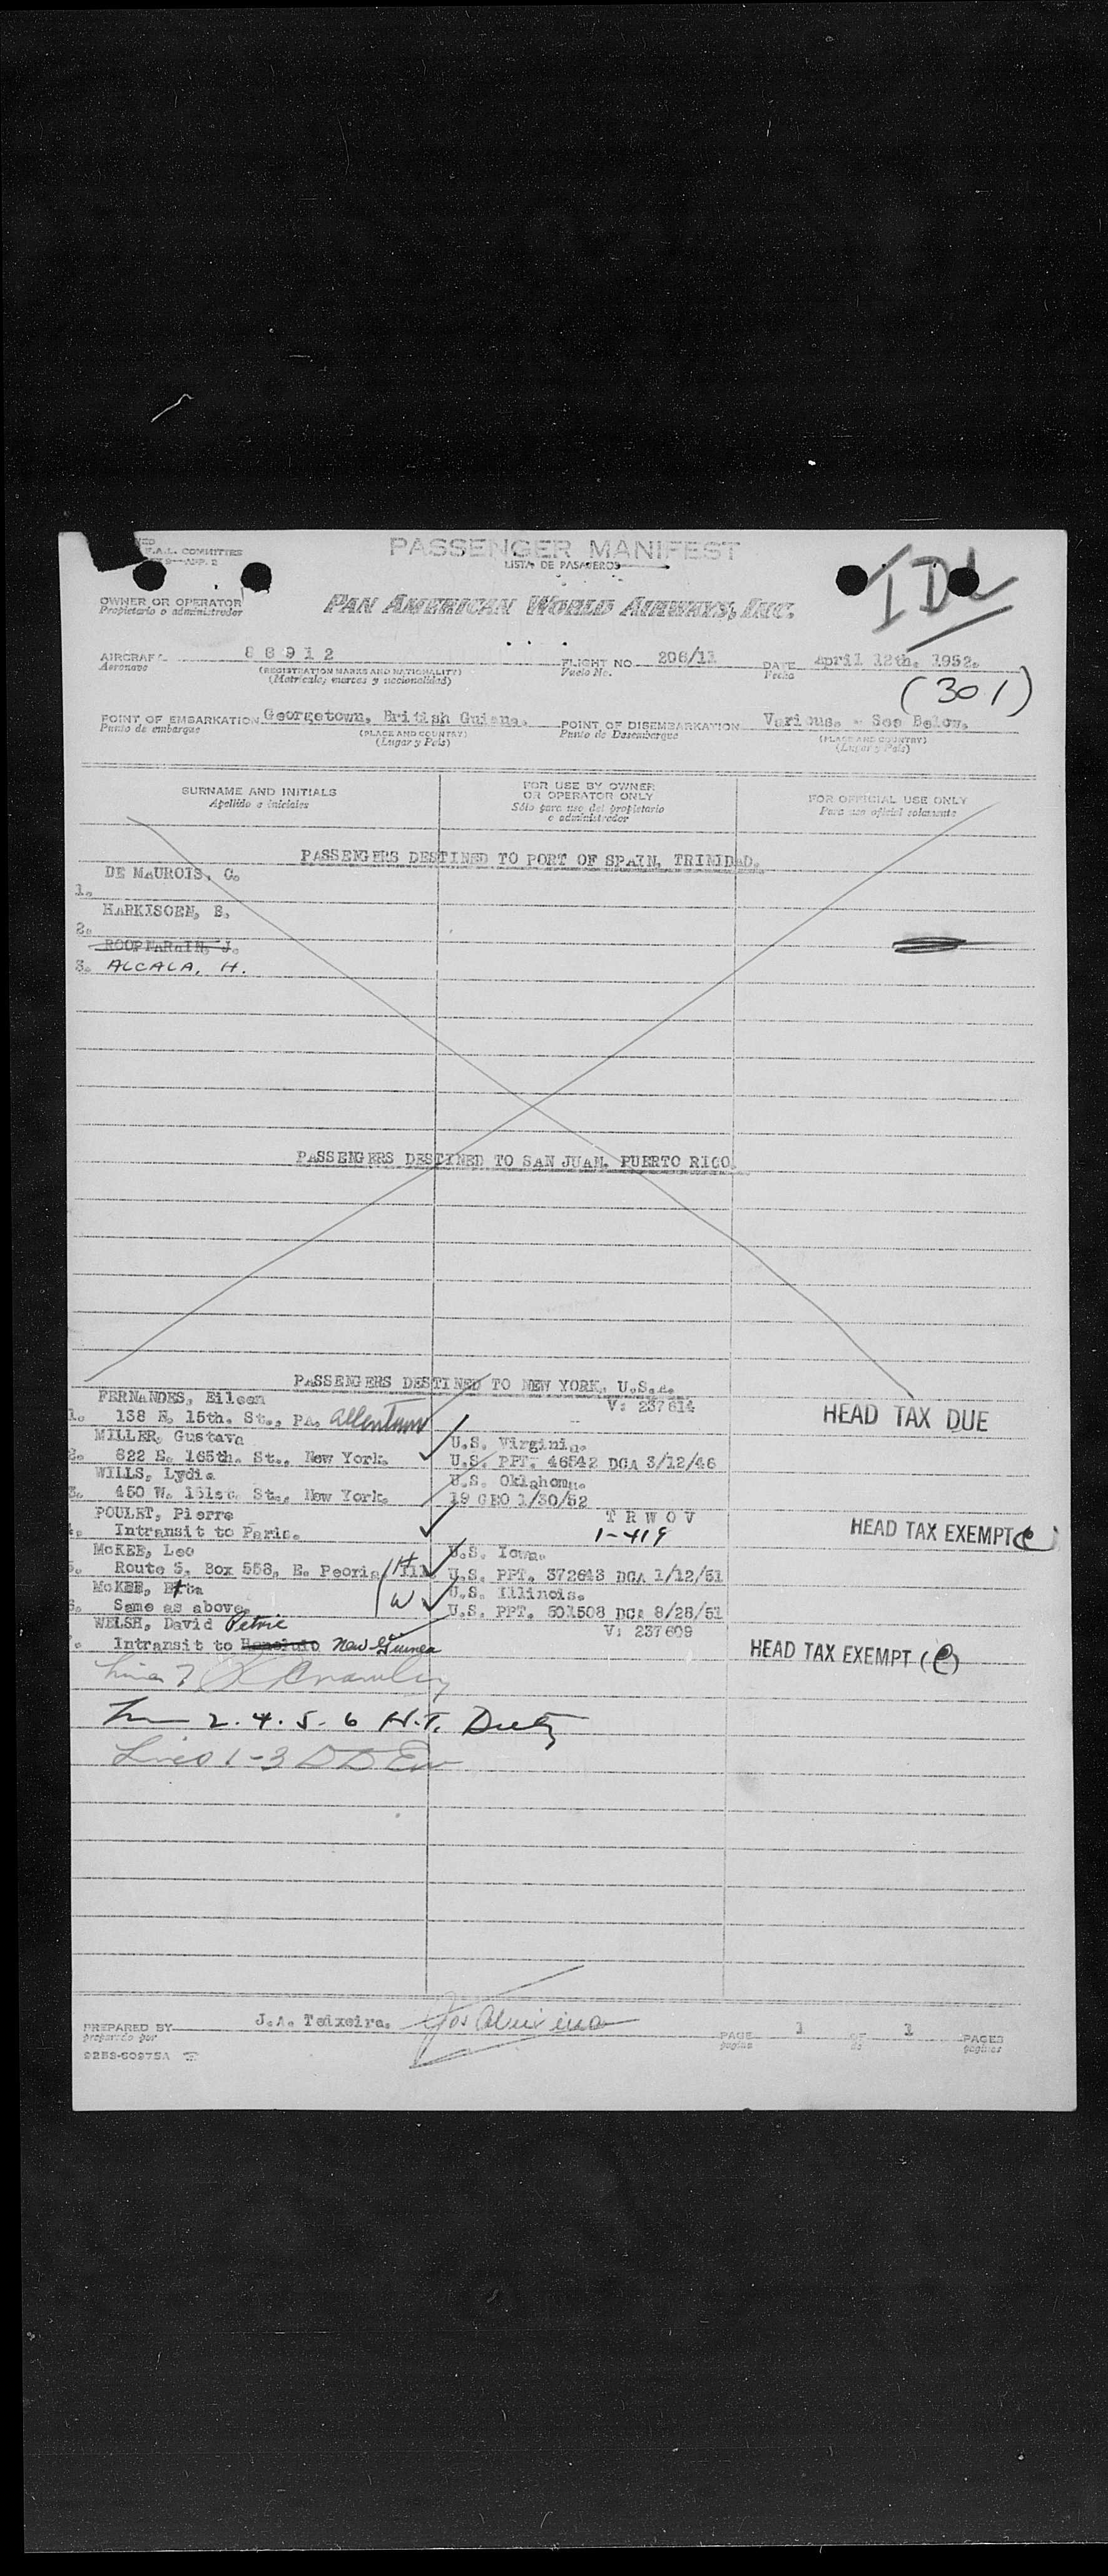 NED
F.A.L. COMMITTEE
APP. 2
PASSENGER MANIFEST
LISTA DE PASAJEROS
IDL
OWNER OR OPERATOR
Propietario o administrador
PAN AMERICAN WORLD AIRWAYS, INC.
AIRCRAFT 88912 FLIGHT NO. 206/11 DATE April 12th. 1952.
Aeronave (REGISTRATION MARKS AND NATIONALITY) Vuelo No. Fecha
(Matrícula; marcas y nacionalidad)
(301)
POINT OF EMBARKATION Georgetown, British Guiana. POINT OF DISEMBARKATION Various. - See Below.
Punto de embarque (PLACE AND COUNTRY) Punto de Desembarque (PLACE AND COUNTRY)
(Lugar y País) (Lugar y País)
SURNAME AND INITIALS
Apellido e iniciales
FOR USE BY OWNER
OR OPERATOR ONLY
Sólo para uso del propietario
o administrador
FOR OFFICIAL USE ONLY
Para uso oficial solamente
PASSENGERS DESTINED TO PORT OF SPAIN, TRINIDAD.
DE MAUROIS, G.
1.
HARKISOEN, B.
2.
ROOPNARAIN, J.
3. ALCALA, H.
PASSENGERS DESTINED TO SAN JUAN. PUERTO RICO.
PASSENGERS DESTINED TO NEW YORK. U.S.A.
FERNANDES, Eileen V: 237614
1. 138 N. 15th. St., PA. Allentown HEAD TAX DUE
MILLER, Gustava U.S. Virginia.
2. 822 E. 165th. St., New York. U.S. PPT. 46542 DCA 3/12/46
WILLS, Lydia U.S. Oklahoma.
3. 450 W. 151st. St., New York. 19 GEO 1/30/52
POULET, Pierre T R W O V
4. Intransit to Paris. 1-419 HEAD TAX EXEMPT (e)
McKEE, Leo U.S. Iowa.
5. Route 5, Box 558, E. Peoria, Ill. H U.S. PPT. 372643 DCA 1/12/51
McKEE, Etta U.S. Illinois.
6. Same as above. W U.S. PPT. 501508 DCA 8/28/51
WELSH, David Petrie V: 237609
7. Intransit to Honolulu New Guinea HEAD TAX EXEMPT (e)
Line 7
2. 4. 5. 6 H.T.
Lines 1-3
PREPARED BY J.A. Teixeira. PAGE 1 OF 1 PAGES
preparado por página de páginas
9253-60975A